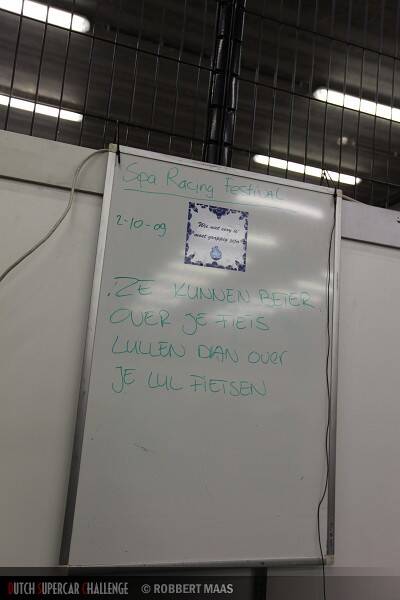 Spa Racing Festival
2-10-09
Wie niet sexy is
moet grappig zijn
ZE KUNNEN BETER
OVER JE FIETS
LULLEN DAN OVER
JE LUL FIETSEN
DUTCH SUPERCAR CHALLENGE © ROBBERT MAAS